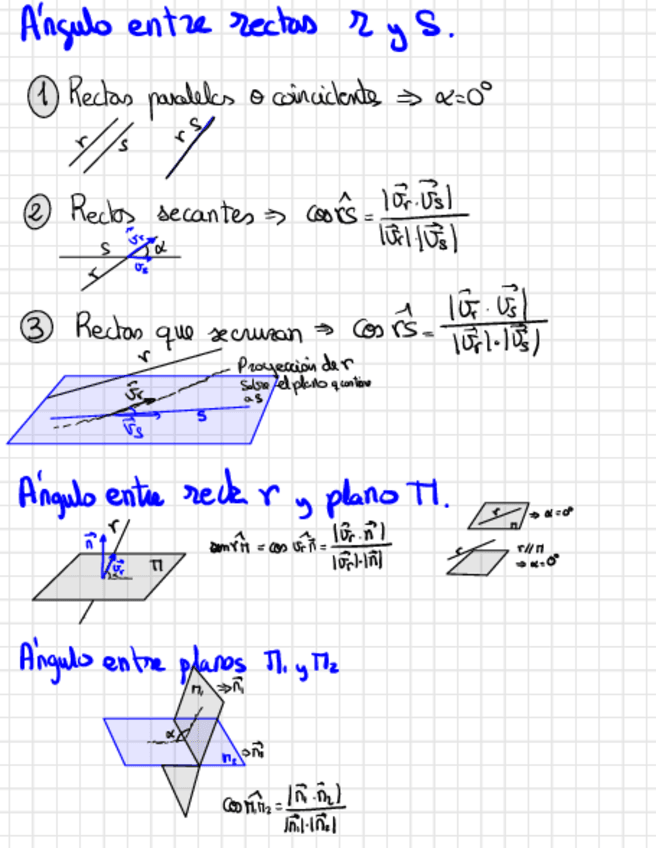 Ángulo entre rectas r y S.
① Rectas paralelas o coincidente ⇒ α=0°
r s r s
② Rectas secantes ⇒ cos r̂s = |v⃗r · v⃗s| / |v⃗r|·|v⃗s|
s v⃗r α
r v⃗s
③ Rectas que se cruzan ⇒ cos r̂s = |v⃗r · v⃗s| / |v⃗r|·|v⃗s|
r
Proyección de r
sobre el plano q contiene
a s
v⃗r
v⃗s s
Ángulo entre recta r y plano Π.
r Π ⇒ α=0°
n⃗ r v⃗r Π
sen r̂Π = cos v⃗r n⃗ = |v⃗r · n⃗| / |v⃗r|·|n⃗|
r r//Π
⇒ α=0°
Ángulo entre planos Π₁ y Π₂
Π₁ ⇒ n⃗₁
α
Π₂
cos Π₁Π₂ = |n⃗₁ · n⃗₂| / |n⃗₁|·|n⃗₂|